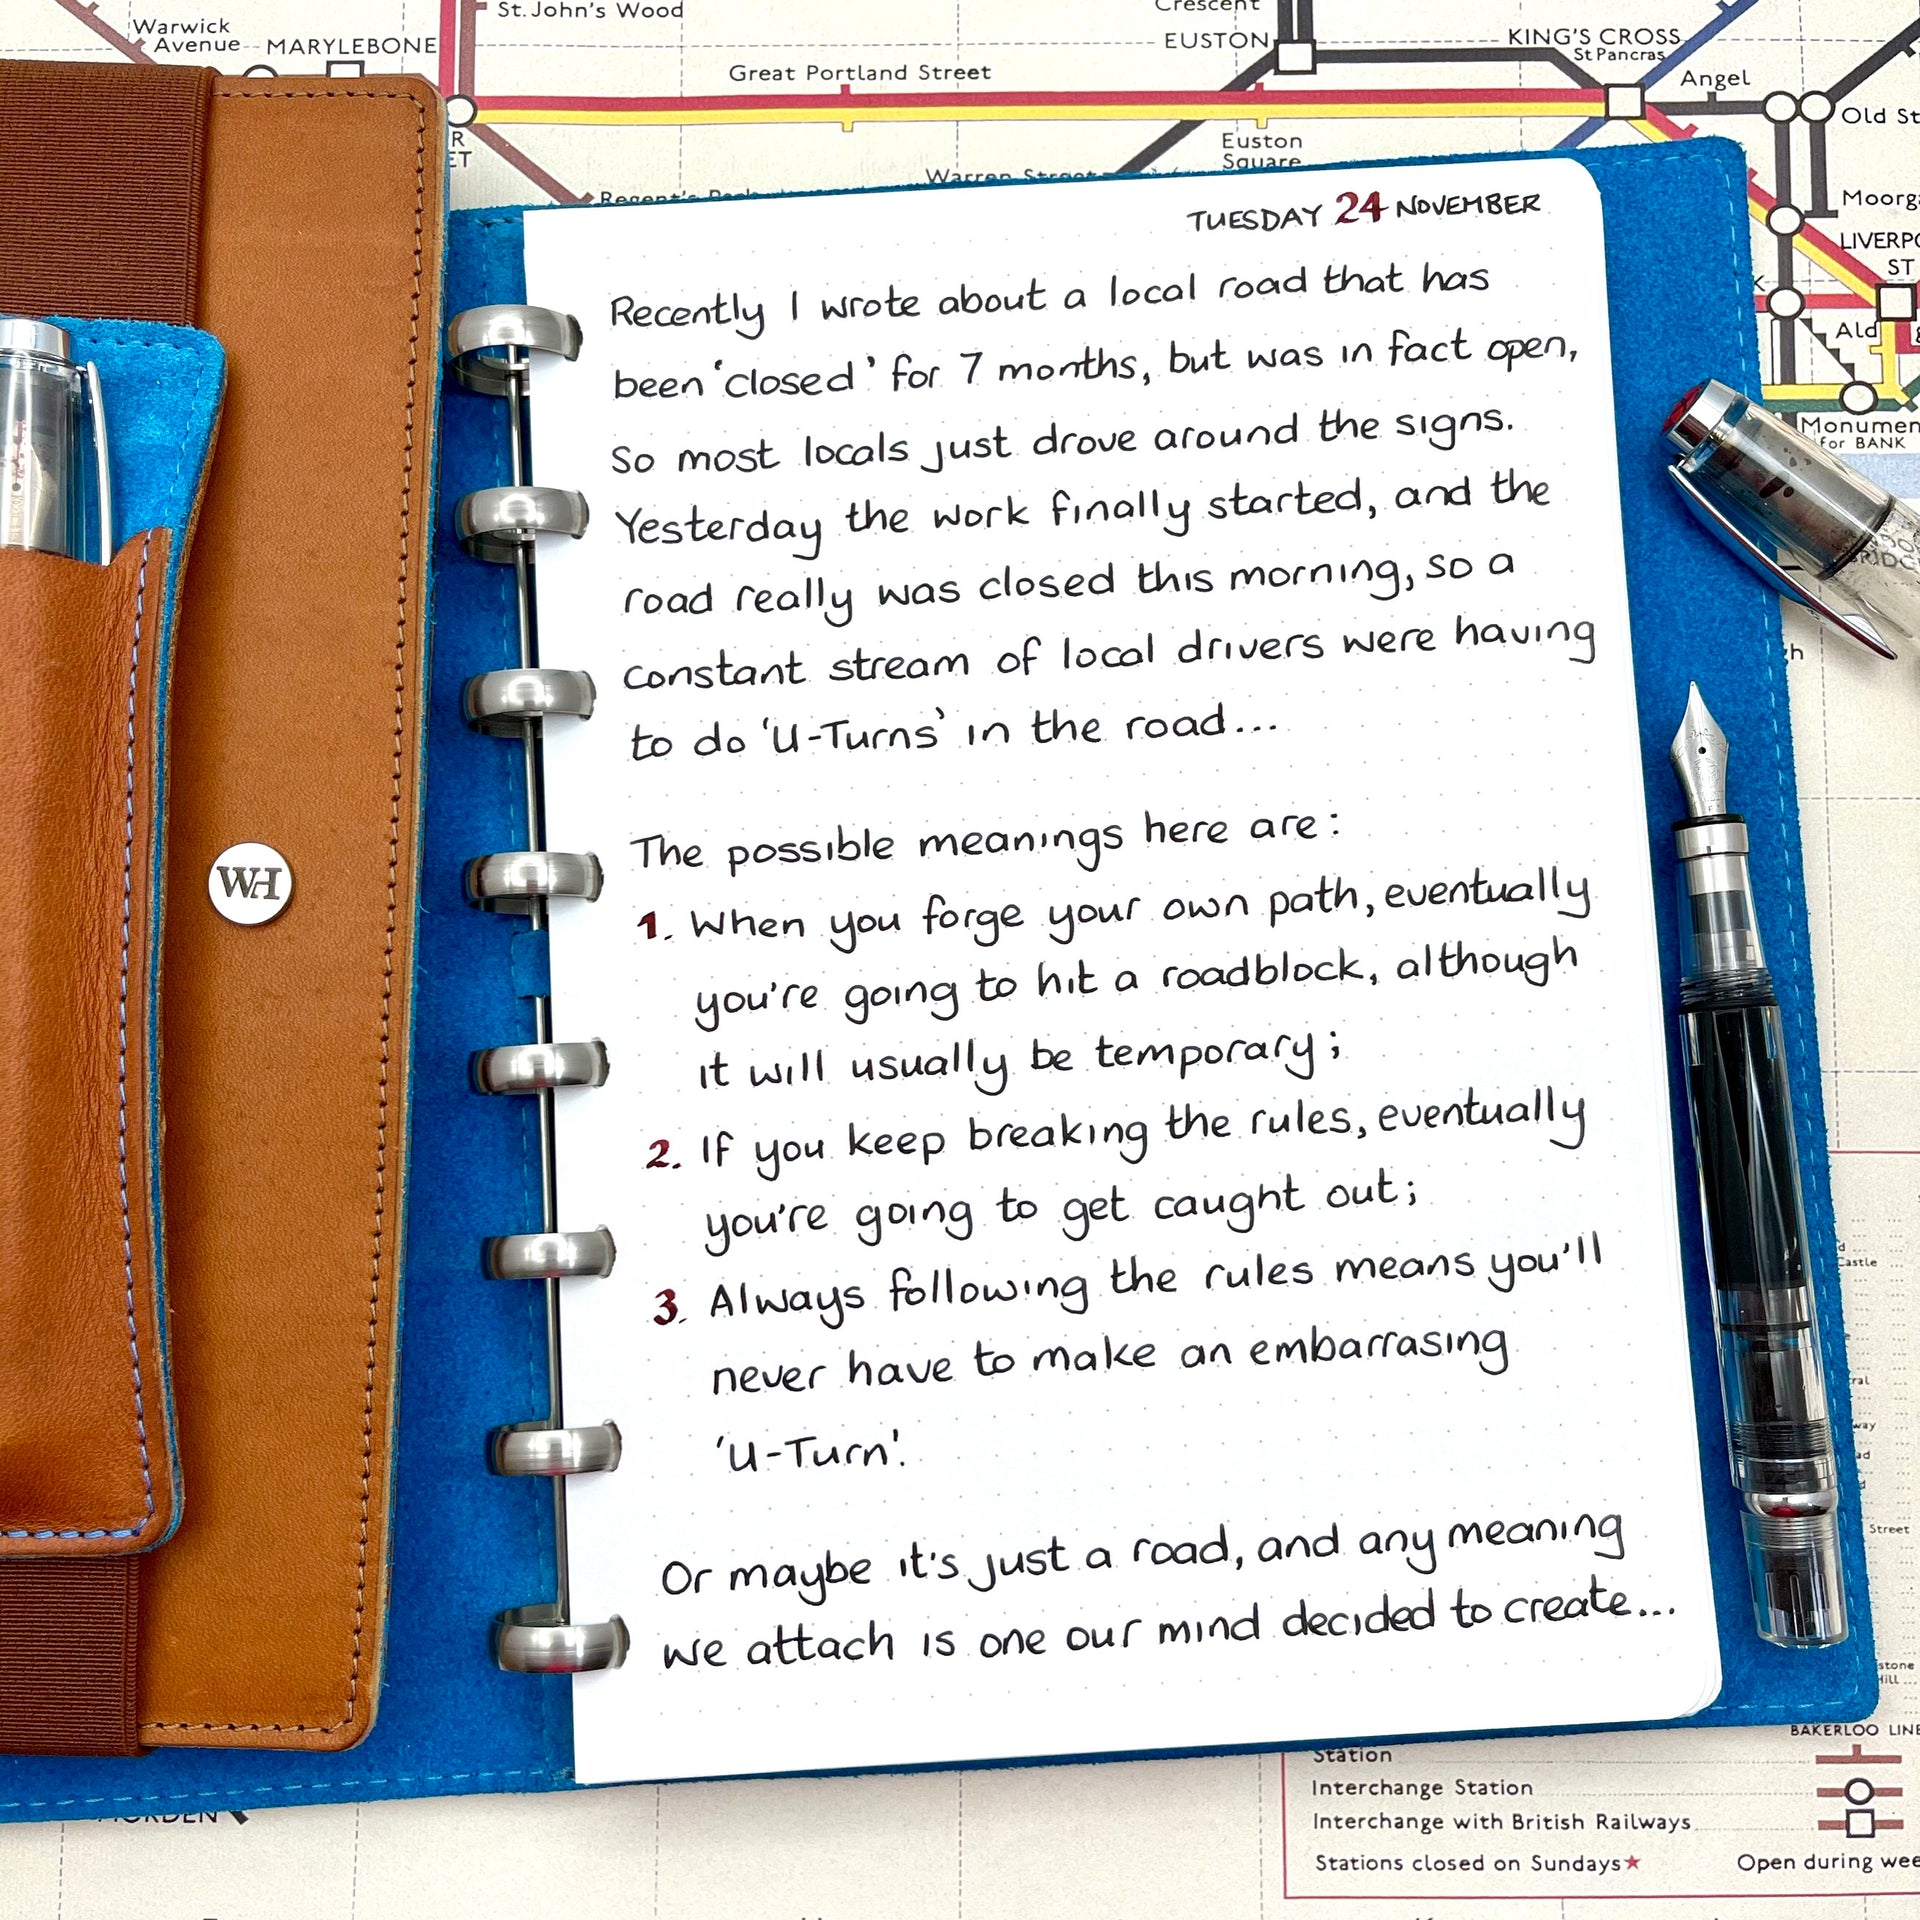 Warwick
Avenue
MARYLEBONE
St. John's Wood
Great Portland Street
Crescent
EUSTON
KING'S CROSS
St Pancras
Angel
Old St
Euston
Square
Warren Street
Regent's Park
Moorg
LIVERPO
ST
Ald
Monumen
for BANK
WH
TUESDAY 24 NOVEMBER
Recently I wrote about a local road that has
been 'closed' for 7 months, but was in fact open,
So most locals just drove around the signs.
Yesterday the work finally started, and the
road really was closed this morning, so a
constant stream of local drivers were having
to do 'U-Turns' in the road...
The possible meanings here are:
1. When you forge your own path, eventually
you're going to hit a roadblock, although
it will usually be temporary;
2. If you keep breaking the rules, eventually
you're going to get caught out;
3. Always following the rules means you'll
never have to make an embarrasing
'U-Turn'.
Or maybe it's just a road, and any meaning
we attach is one our mind decided to create...
Castle
Street
BAKERLOO LINE
Station
Interchange Station
Interchange with British Railways
Stations closed on Sundays★
Open during wee
MORDEN